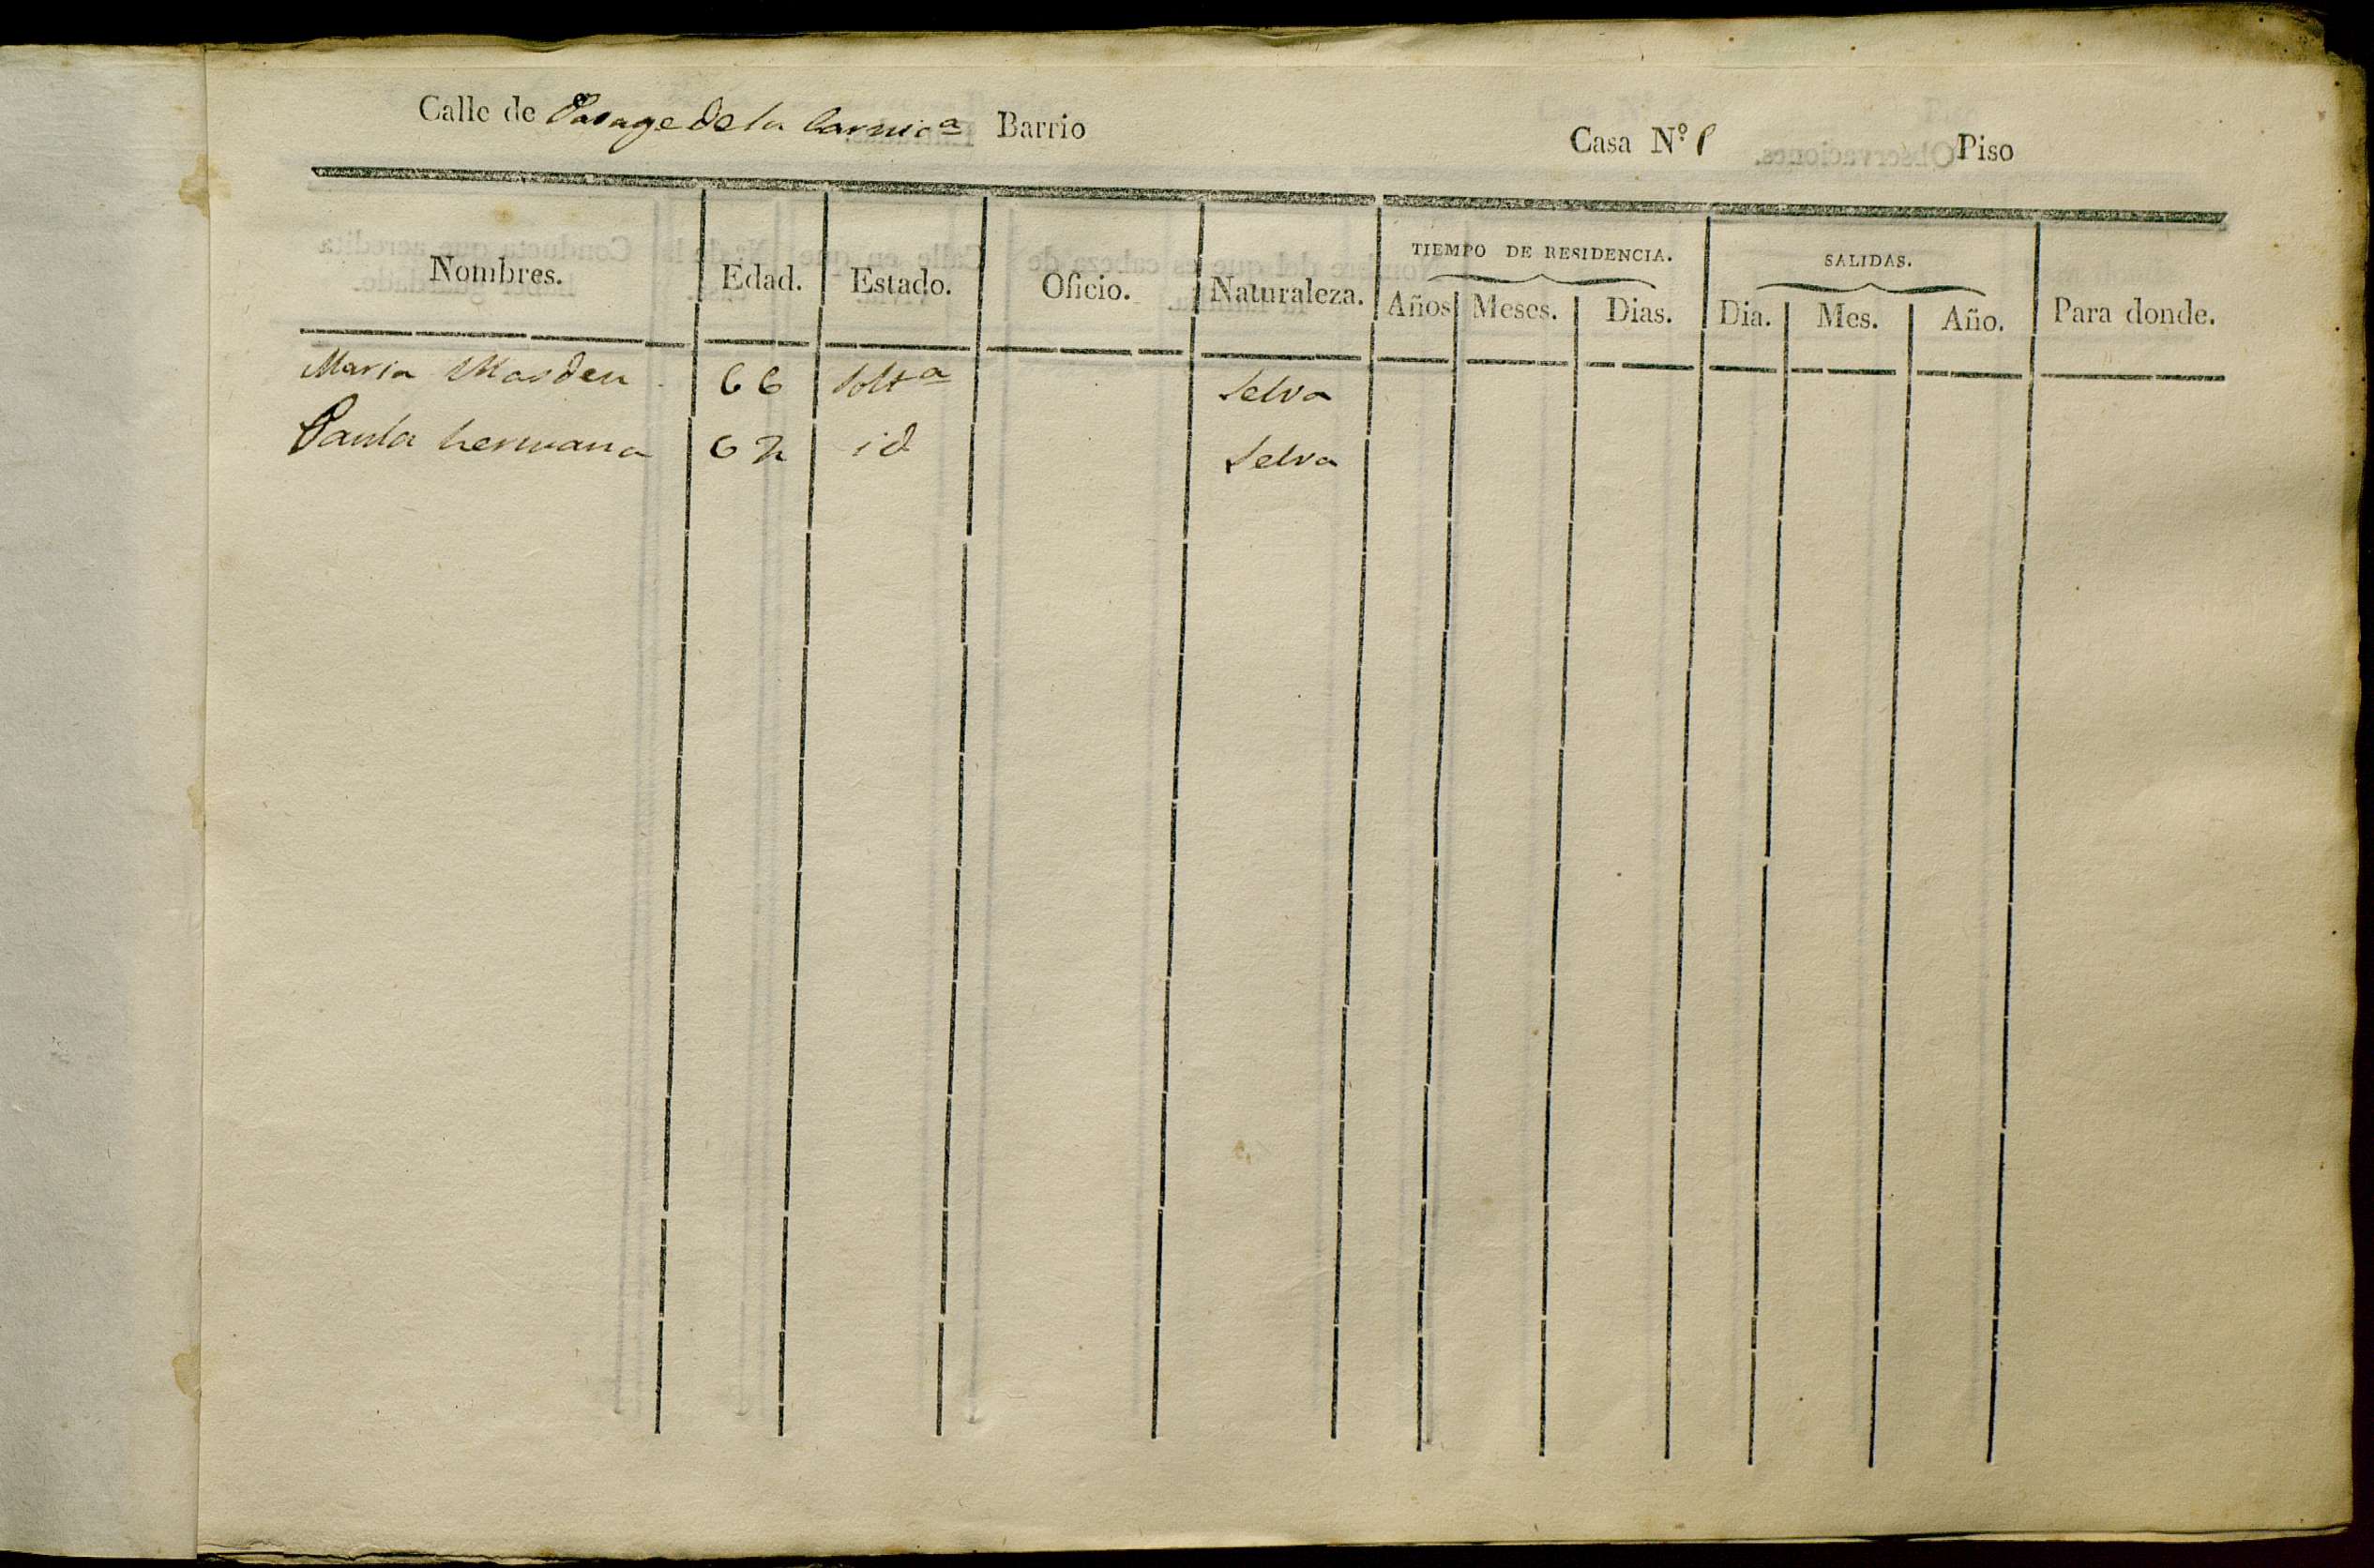 Calle de Pasage de la Carnica Barrio Casa N.º 1 Piso
Nombres. Edad. Estado. Oficio. Naturaleza. TIEMPO DE RESIDENCIA. Años Meses. Dias. SALIDAS. Dia. Mes. Año. Para donde.
Maria Masdeu 66 Solt.ª Selva
Paula hermana 62 id Selva